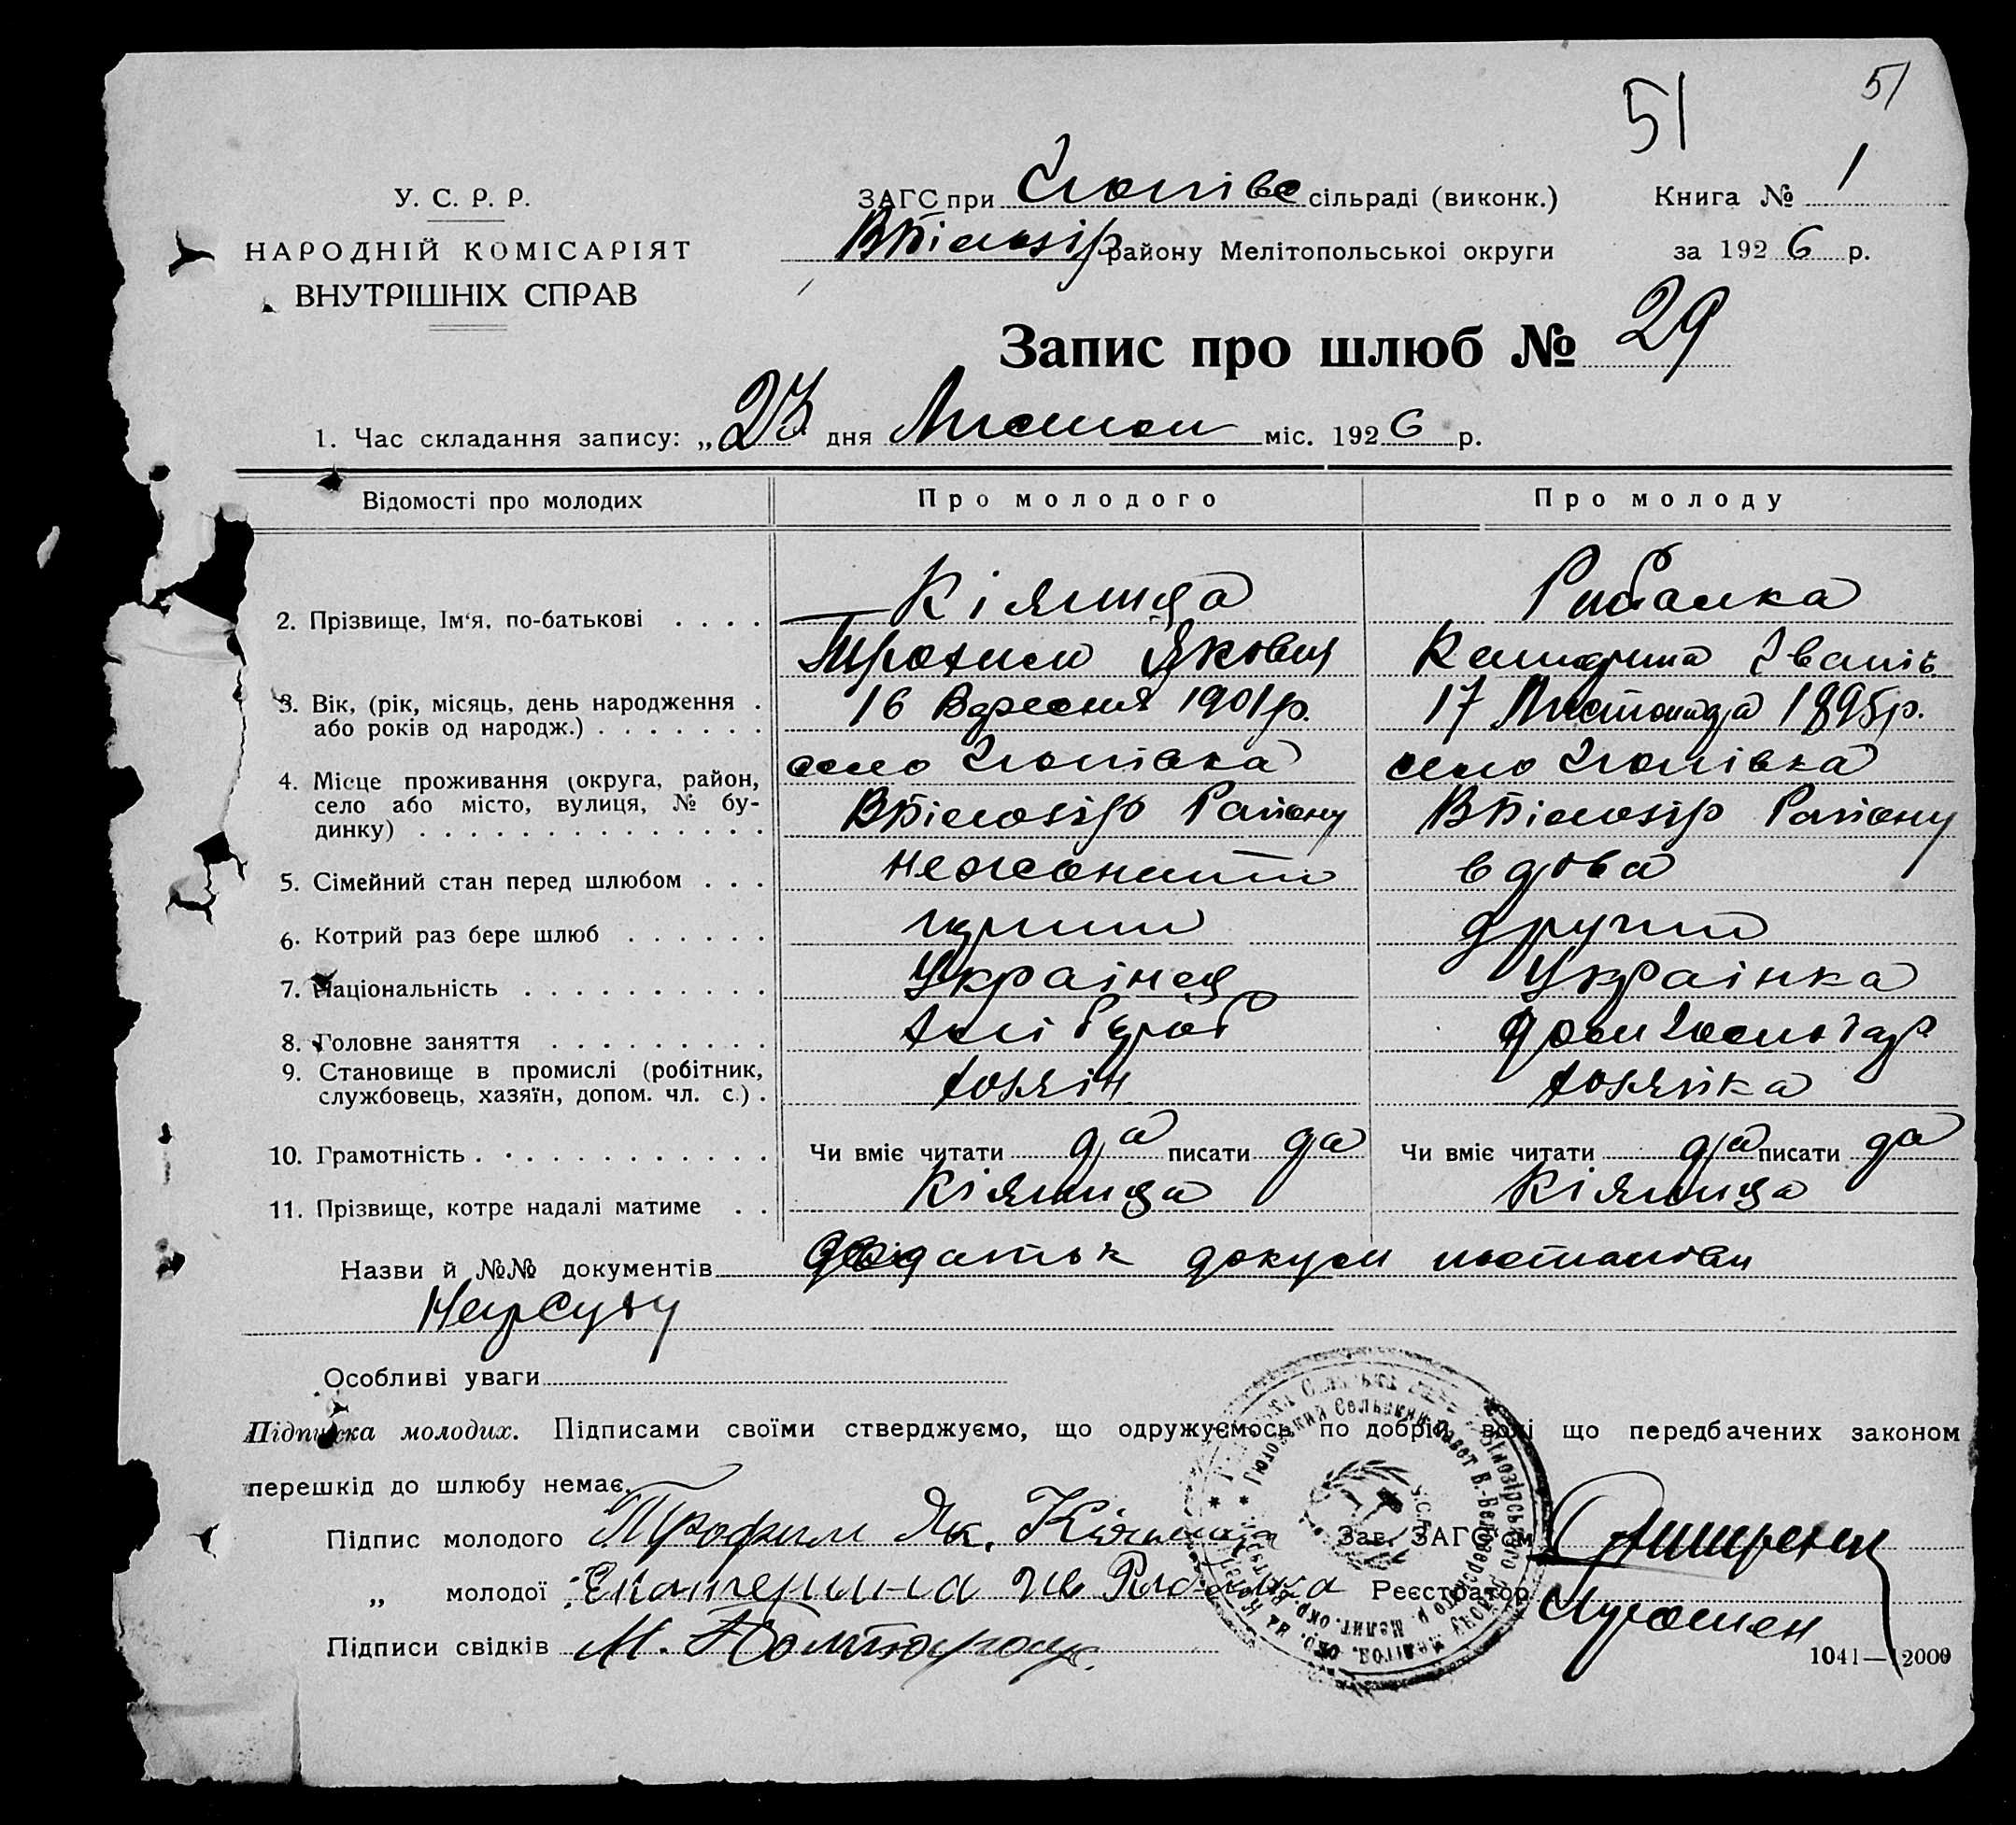 51
51
У. С. Р. Р.
НАРОДНІЙ КОМІСАРІЯТ
ВНУТРІШНІХ СПРАВ
ЗАГС при сільраді (виконк.)
ВБілозір району Мелітопольської округи
Книга № 1
за 1926 р.
Запис про шлюб № 29
1. Час складання запису: „23" дня Листопа міс. 1926 р.
Відомості про молодих Про молодого Про молоду
2. Прізвище, Ім'я, по-батькові . . . . Кіяниця Рибалка
Трохим Якович Катерина Іванів
3. Вік, (рік, місяць, день народження . або років од народж.) . . . . . . . 16 Вересня 1901 р. 17 Листопада 1895 р.
4. Місце проживання (округа, район, село або місто, вулиця, № будинку) . . . . . . . . . . . . . . село село
ВБілозір Району ВБілозір Району
5. Сімейний стан перед шлюбом . . . нежонатий вдова
6. Котрий раз бере шлюб . . . . . . перший другий
7. Національність . . . . . . . . . . Украінец Украінка
8. Головне заняття . . . . . . . . . хлібороб дом господар
9. Становище в промислі (робітник, службовець, хазяїн, допом. чл. с.) . хозяін хозяйка
10. Грамотність . . . . . . . . . . . . Чи вміє читати да писати да Чи вміє читати да писати да
11. Прізвище, котре надалі матиме . . Кіяниця Кіяниця
Назви й №№ документів додаток докум постанови
НарСуду
Особливі уваги
Підписка молодих. Підписами своїми стверджуємо, що одружуємось по добрій волі що передбачених законом
перешкід до шлюбу немає.
Підпис молодого Трофим Як. Кіяница Зав. ЗАГС'ом
„ молодої Екатерина Ив Рибалка Реєстратор
Підписи свідків М.
1041—12000